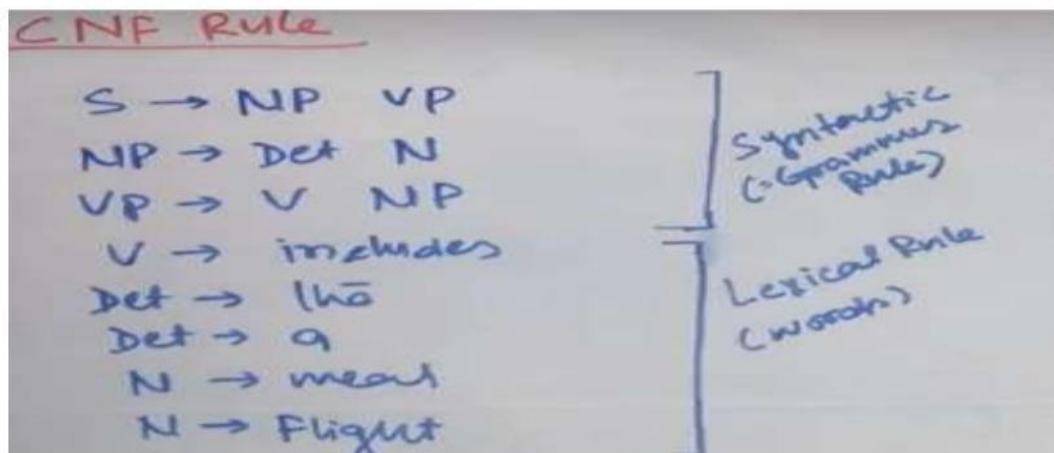 CNF Rule
S → NP VP
NP → Det N
VP → V NP
V → includes
Det → the
Det → a
N → meal
N → Flight
Syntactic
(Grammar
Rule)
Lexical Rule
(words)